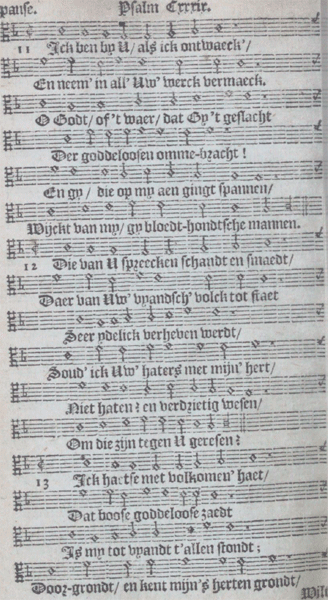 pause. Psalm Cxxxix.
11 Ick ben by U/ als ick ontwaeck'/
En neem' in all' Uw' werck vermaeck.
O Godt/ of 't waer/ dat Gy 't geslacht
Der goddeloosen omme-bracht!
En gy/ die op my aen gingt spannen/
Wijckt van my/ gy bloedt-hondtsche mannen.
12 Die van U spreecken schandt en smaedt/
Daer van Uw' vyandsch' volck tot staet
Seer ydelick verheven werdt/
Soud' ick Uw' haters met mijn' hert/
Niet haten? en verdrietig wesen/
Om die zijn tegen U geresen?
13 Ick haetse met volkomen' haet/
Dat boose goddeloose zaedt
Is my tot vyandt t'allen stondt;
Door-grondt/ en kent mijn's herten grondt/
Wilt